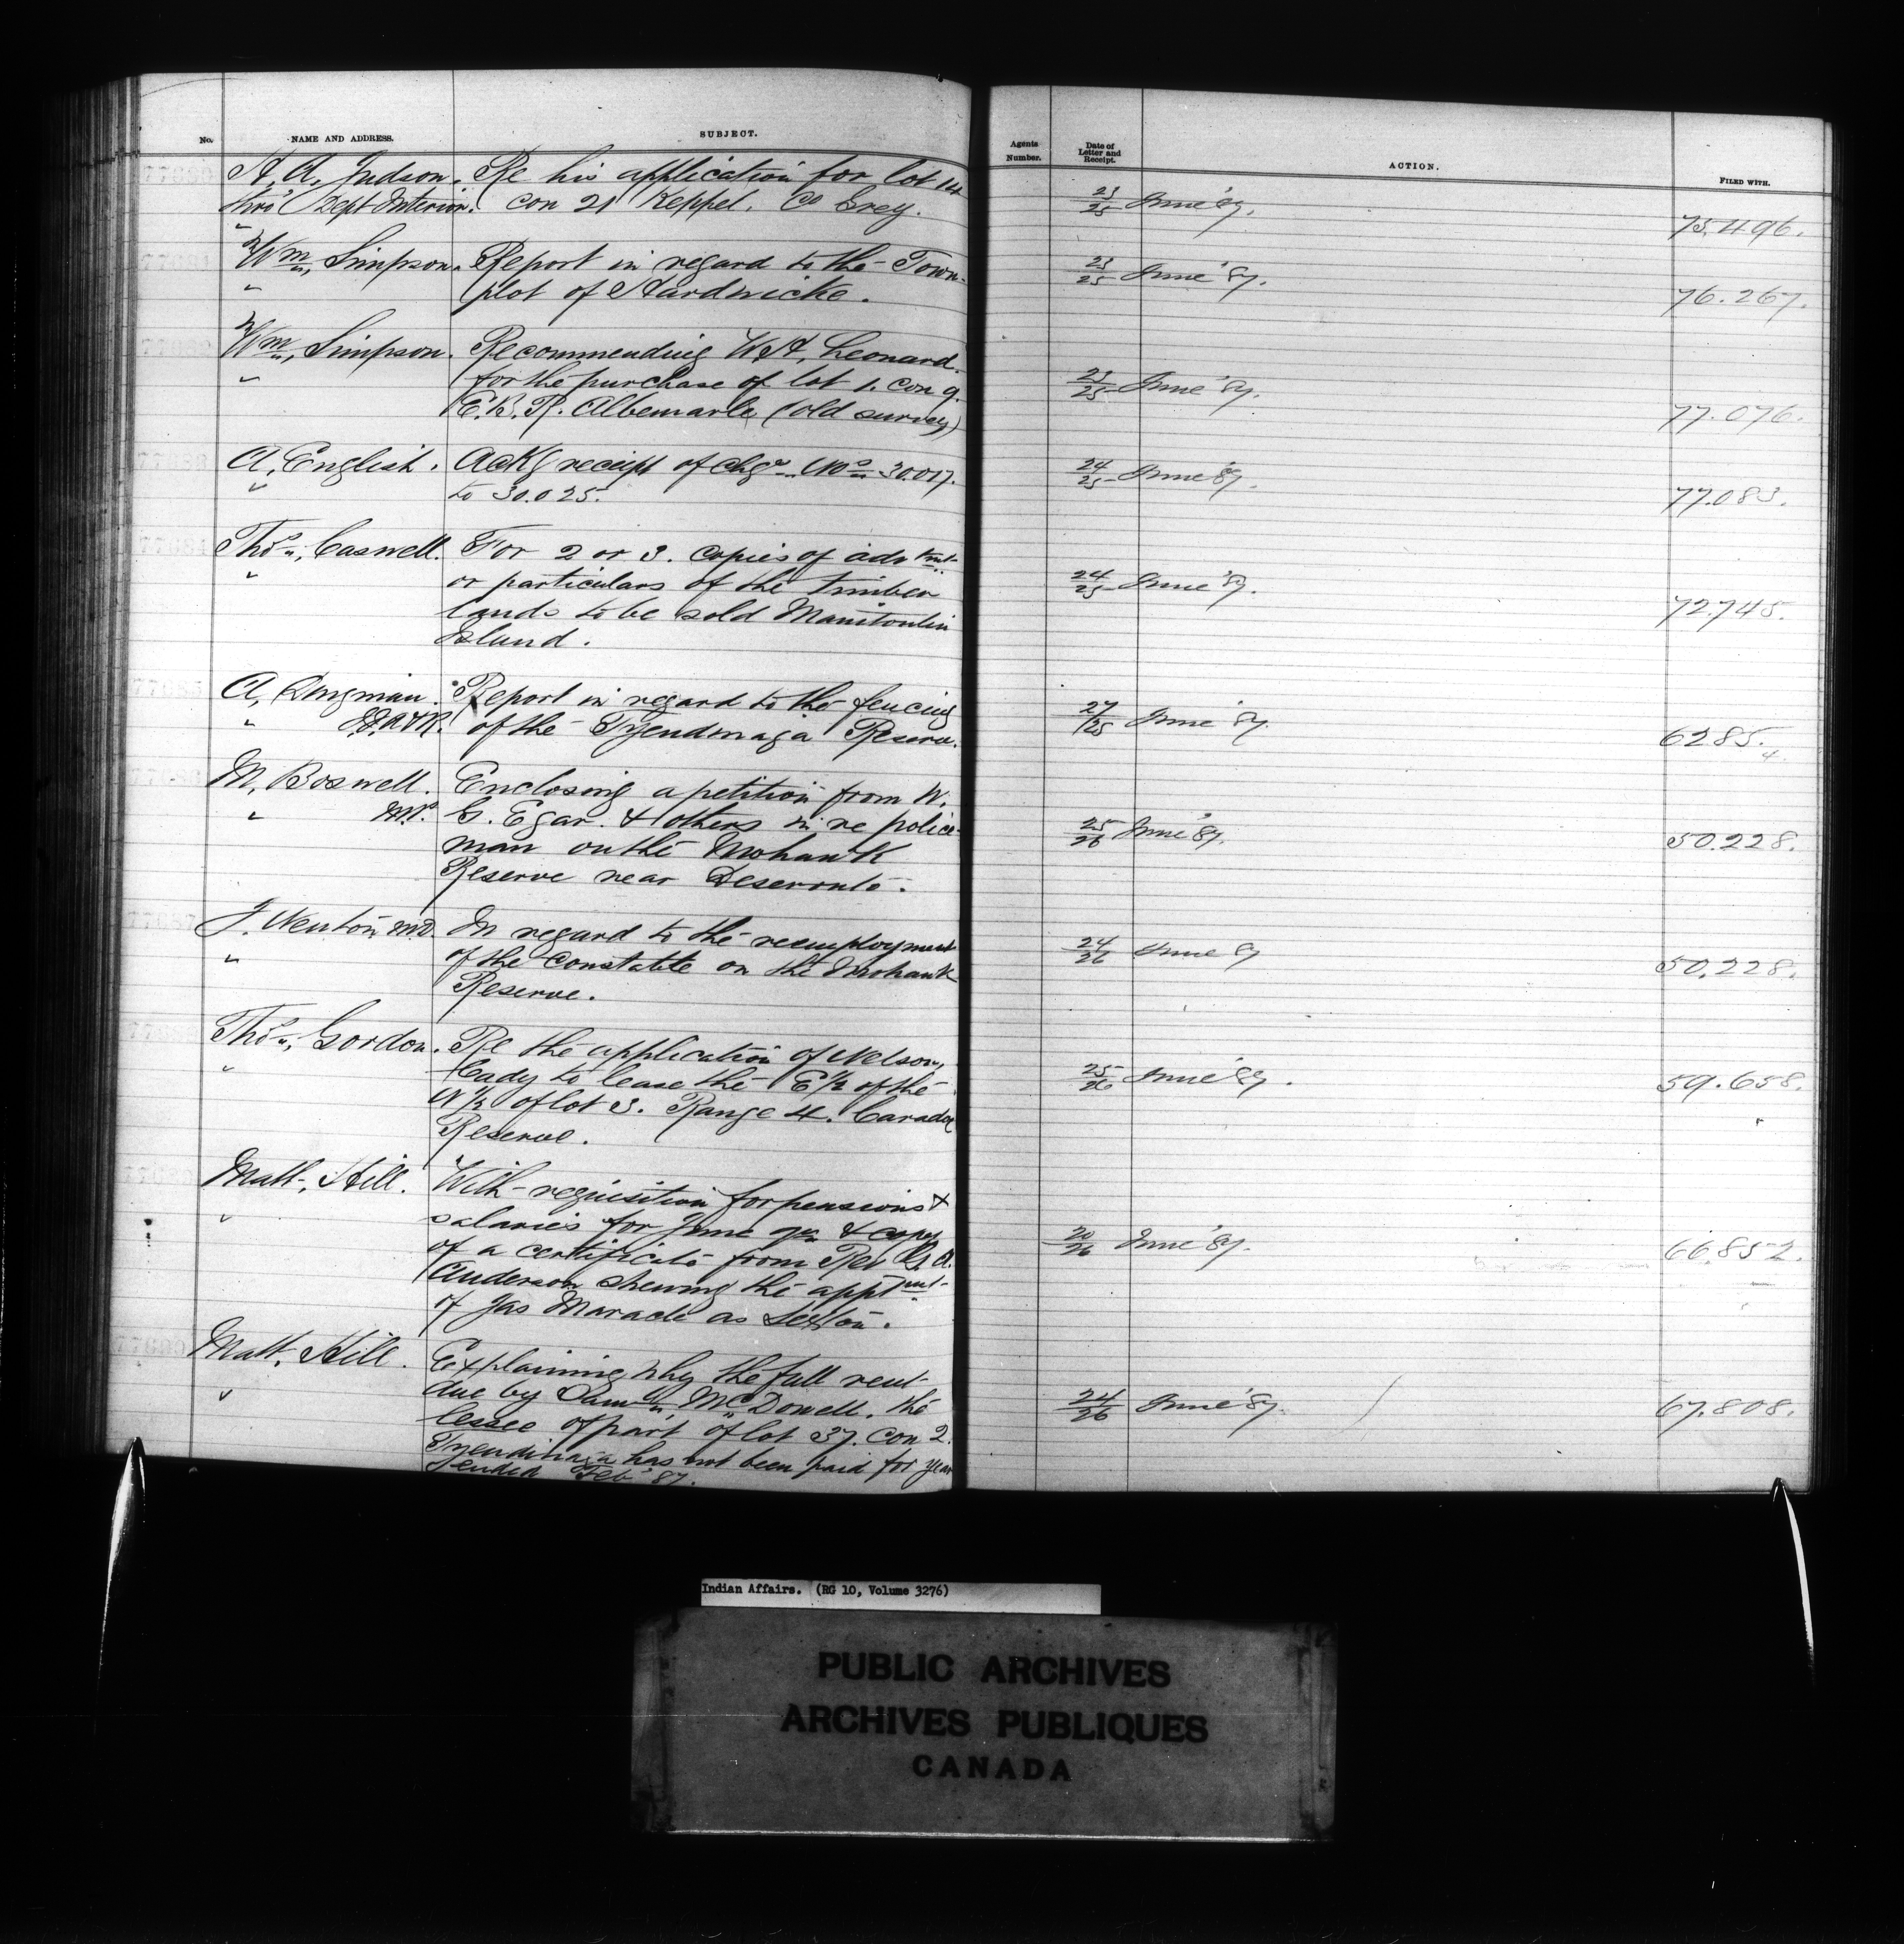 No. NAME AND ADDRESS. SUBJECT.
A. A. Judson. Re his application for lot 14
thro' Dept Interior. Con 21 Keppel, Co Grey.
Wm. Simpson. Report in regard to the Town-
" plot of Hardwicke.
Wm. Simpson. Recommending W. A. Leonard
" for the purchase of lot 1. Con 9.
E. B. R. Albemarle (old survey)
A. English. Ackg receipt of chqs Nos 30.017.
" to 30.025.
Thos. Caswell. For 2 or 3. copies of advtmt
" or particulars of the timber
lands to be sold Manitoulin
Island.
A. Dingman. Report in regard to the fencing
" of the Tyendinaga Reserve.
M. Boswell. Enclosing a petition from W.
" M.P. G. Egar. & others in re police-
man on the Mohawk
Reserve near Deseronto.
J. Newton M.D. In regard to the reemployment
" of the Constable on the Mohawk
Reserve.
Thos. Gordon. Re the application of Nelson,
" Cady to lease the E 1/2 of the
N 1/2 of lot 3. Range 4. Caradoc
Reserve.
Matt. Hill. With requisition for pensions &
" salaries for June qr. & copy
of a certificate from Rev G. A.
Anderson shewing the apptmt
of Jas Maracle as Sexton.
Matt. Hill. Explaining why the full rent
" due by Saml. McDowell. the
lessee of part of lot 37. Con 2.
Tyendinaga has not been paid for year
ended Feb '87.
Agents Number. Date of Letter and Receipt. ACTION. FILED WITH.
23/25 June '87. 75.496.
23/25 June '87. 76.267.
23/25 June '87. 77.076.
24/25 June '87. 77.083.
24/25 June '87. 72.745.
27/25 June '87. 6285.
4.
25/26 June '87. 50.228.
24/26 June 87 50.228.
25/26 June '87. 59.658.
20/26 June '87. 66.852.
24/26 June '87. 67.808.
Indian Affairs. (RG 10, Volume 3276)
PUBLIC ARCHIVES
ARCHIVES PUBLIQUES
CANADA